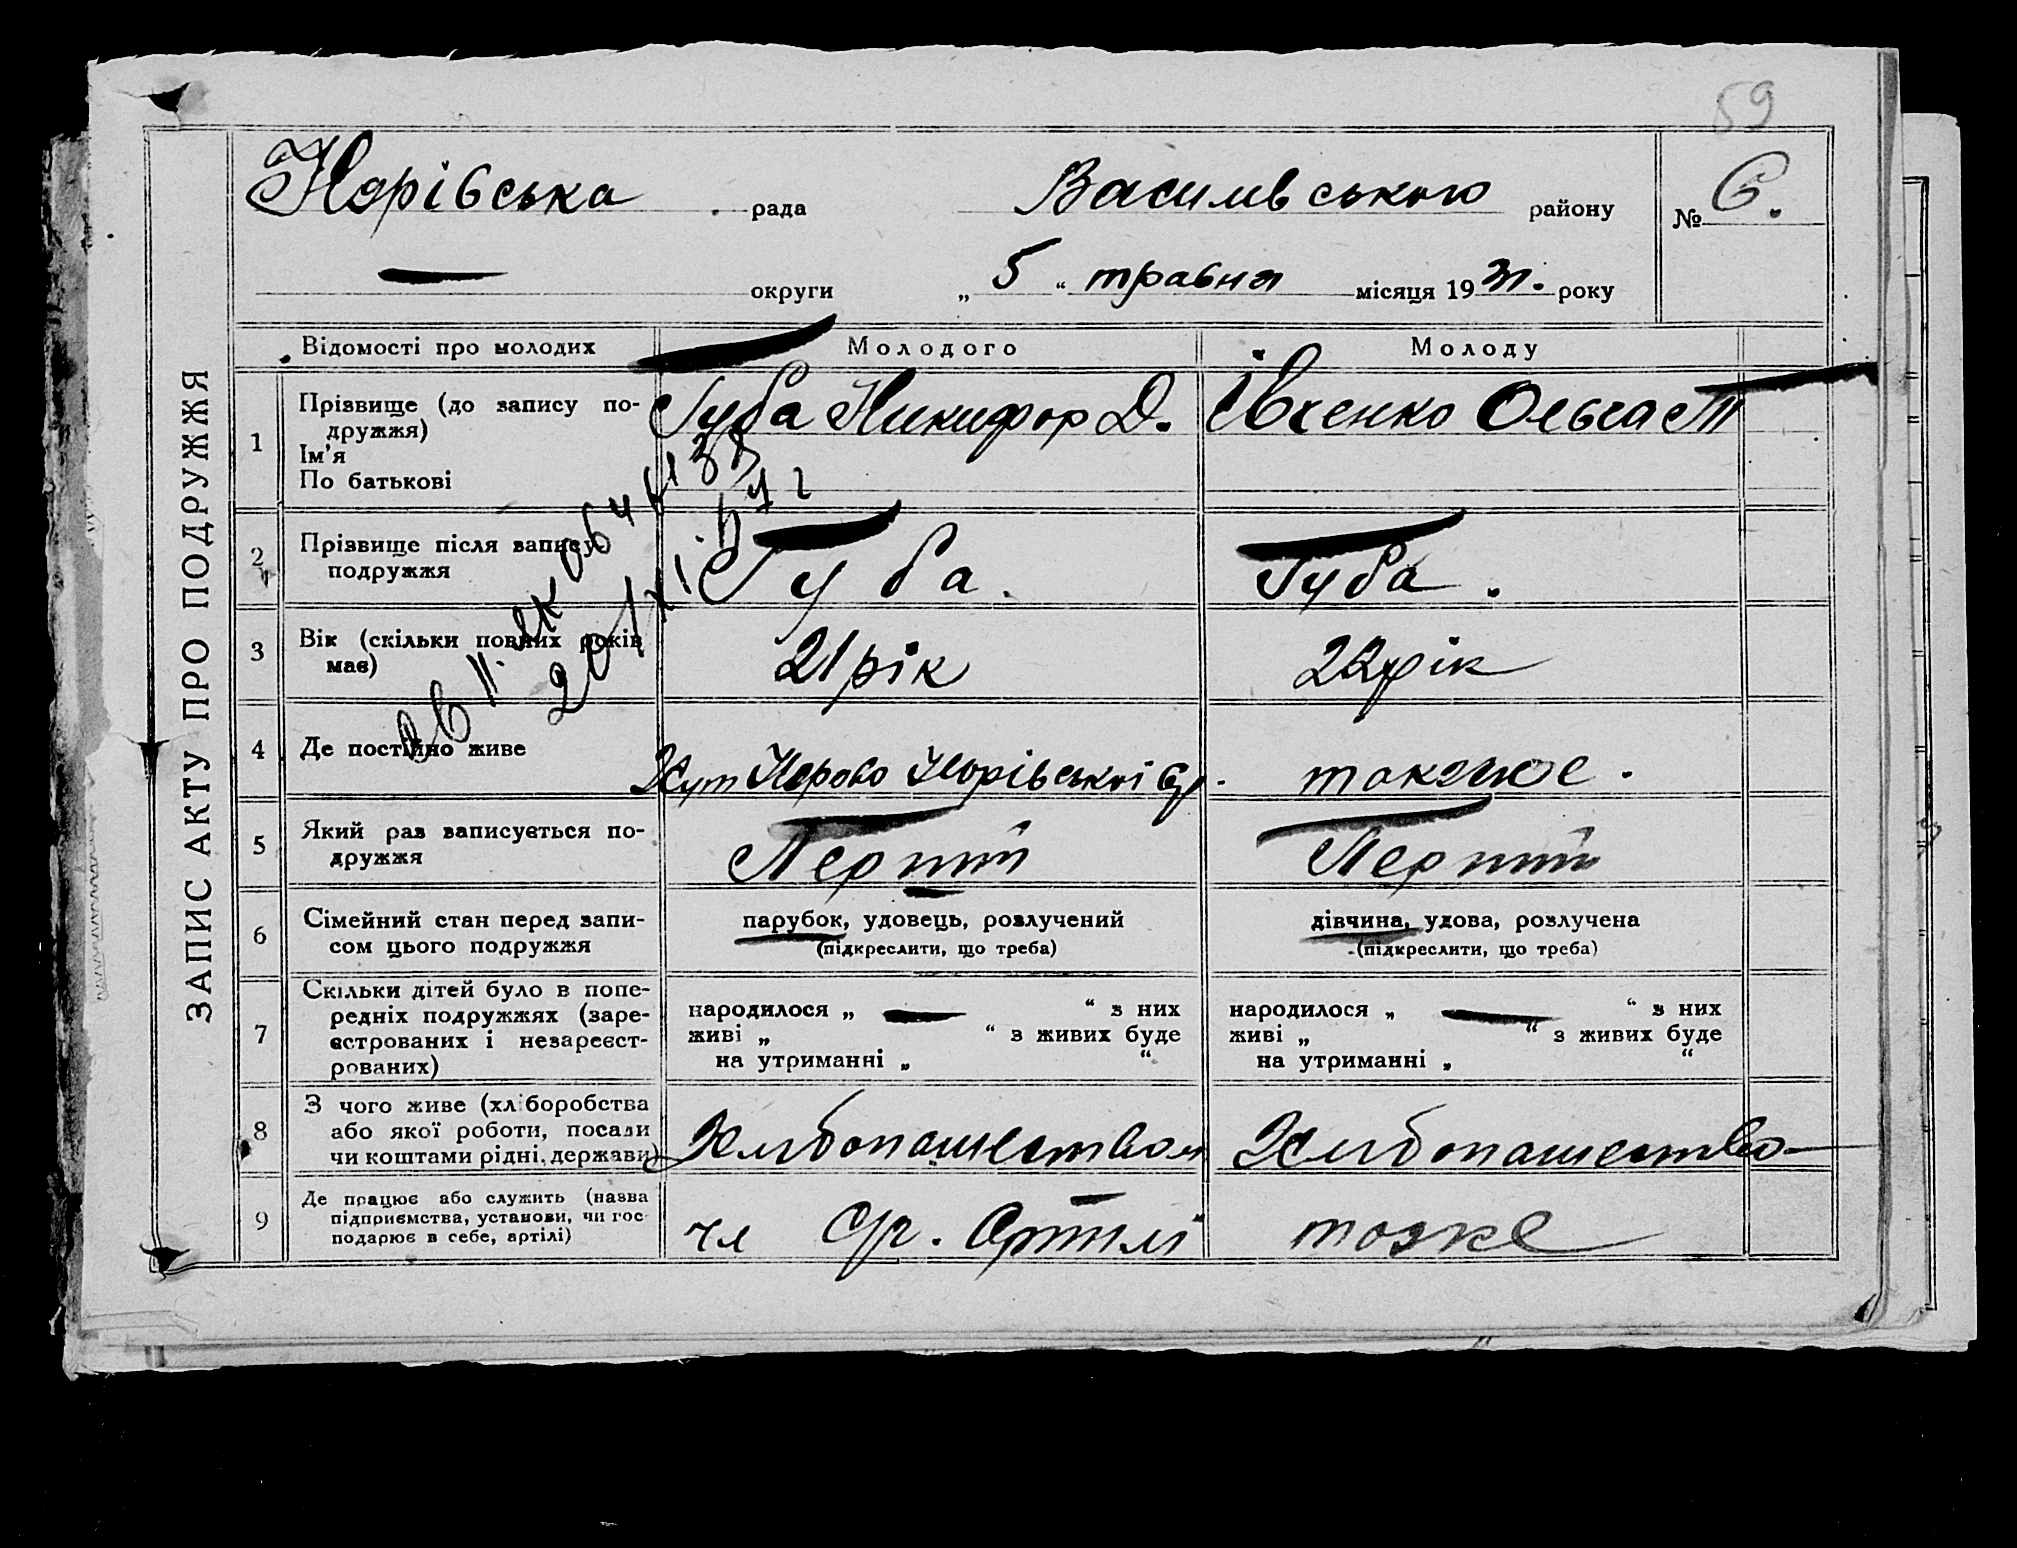 59
рада
Василівського району
№ 6.
округи
„ 5 “ травня місяця 1931. року
ЗАПИС АКТУ ПРО ПОДРУЖЖЯ
Відомості про молодих
Молодого
Молоду
1
Прізвище (до запису по-
дружжя)
Ім’я
По батькові
Губа Никифор Д.
Івченко Ольга
2
Прізвище після запису
подружжя
Губа.
Губа.
3
Вік (скільки повних років
має)
21 рік
22 рік
4
Де постійно живе
Хут
також е.
5
Який раз записується по-
дружжя
Перший
Перший
6
Сімейний стан перед запи-
сом цього подружжя
парубок, удовець, розлучений
(підкреслити, що треба)
дівчина, удова, розлучена
(підкреслити, що треба)
7
Скільки дітей було в попе-
редніх подружжях (заре-
єстрованих і незареєст-
рованих)
народилося „ — “ з них
живі „ “ з живих буде
на утриманні „ “
народилося „ — “ з них
живі „ “ з живих буде
на утриманні „ “
8
З чого живе (хліборобства
або якої роботи, посади
чи коштами рідні, держави)
Хлібопашеством
Хлібопашество
9
Де працює або служить (назва
підприємства, установи, чи гос-
подарює в себе, артілі)
чл Ср. Артілі
тоже